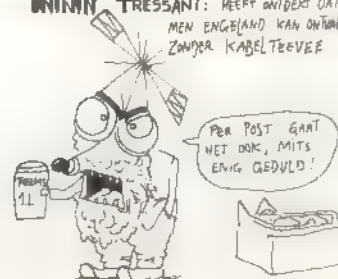 TRESSANT: HEEFT ONTDEKT DAT
MEN ENGELAND KAN
ZONDER KABELTEEVEE
PER POST GAAT
HET OOK, MITS
ENIG GEDULD!
1L